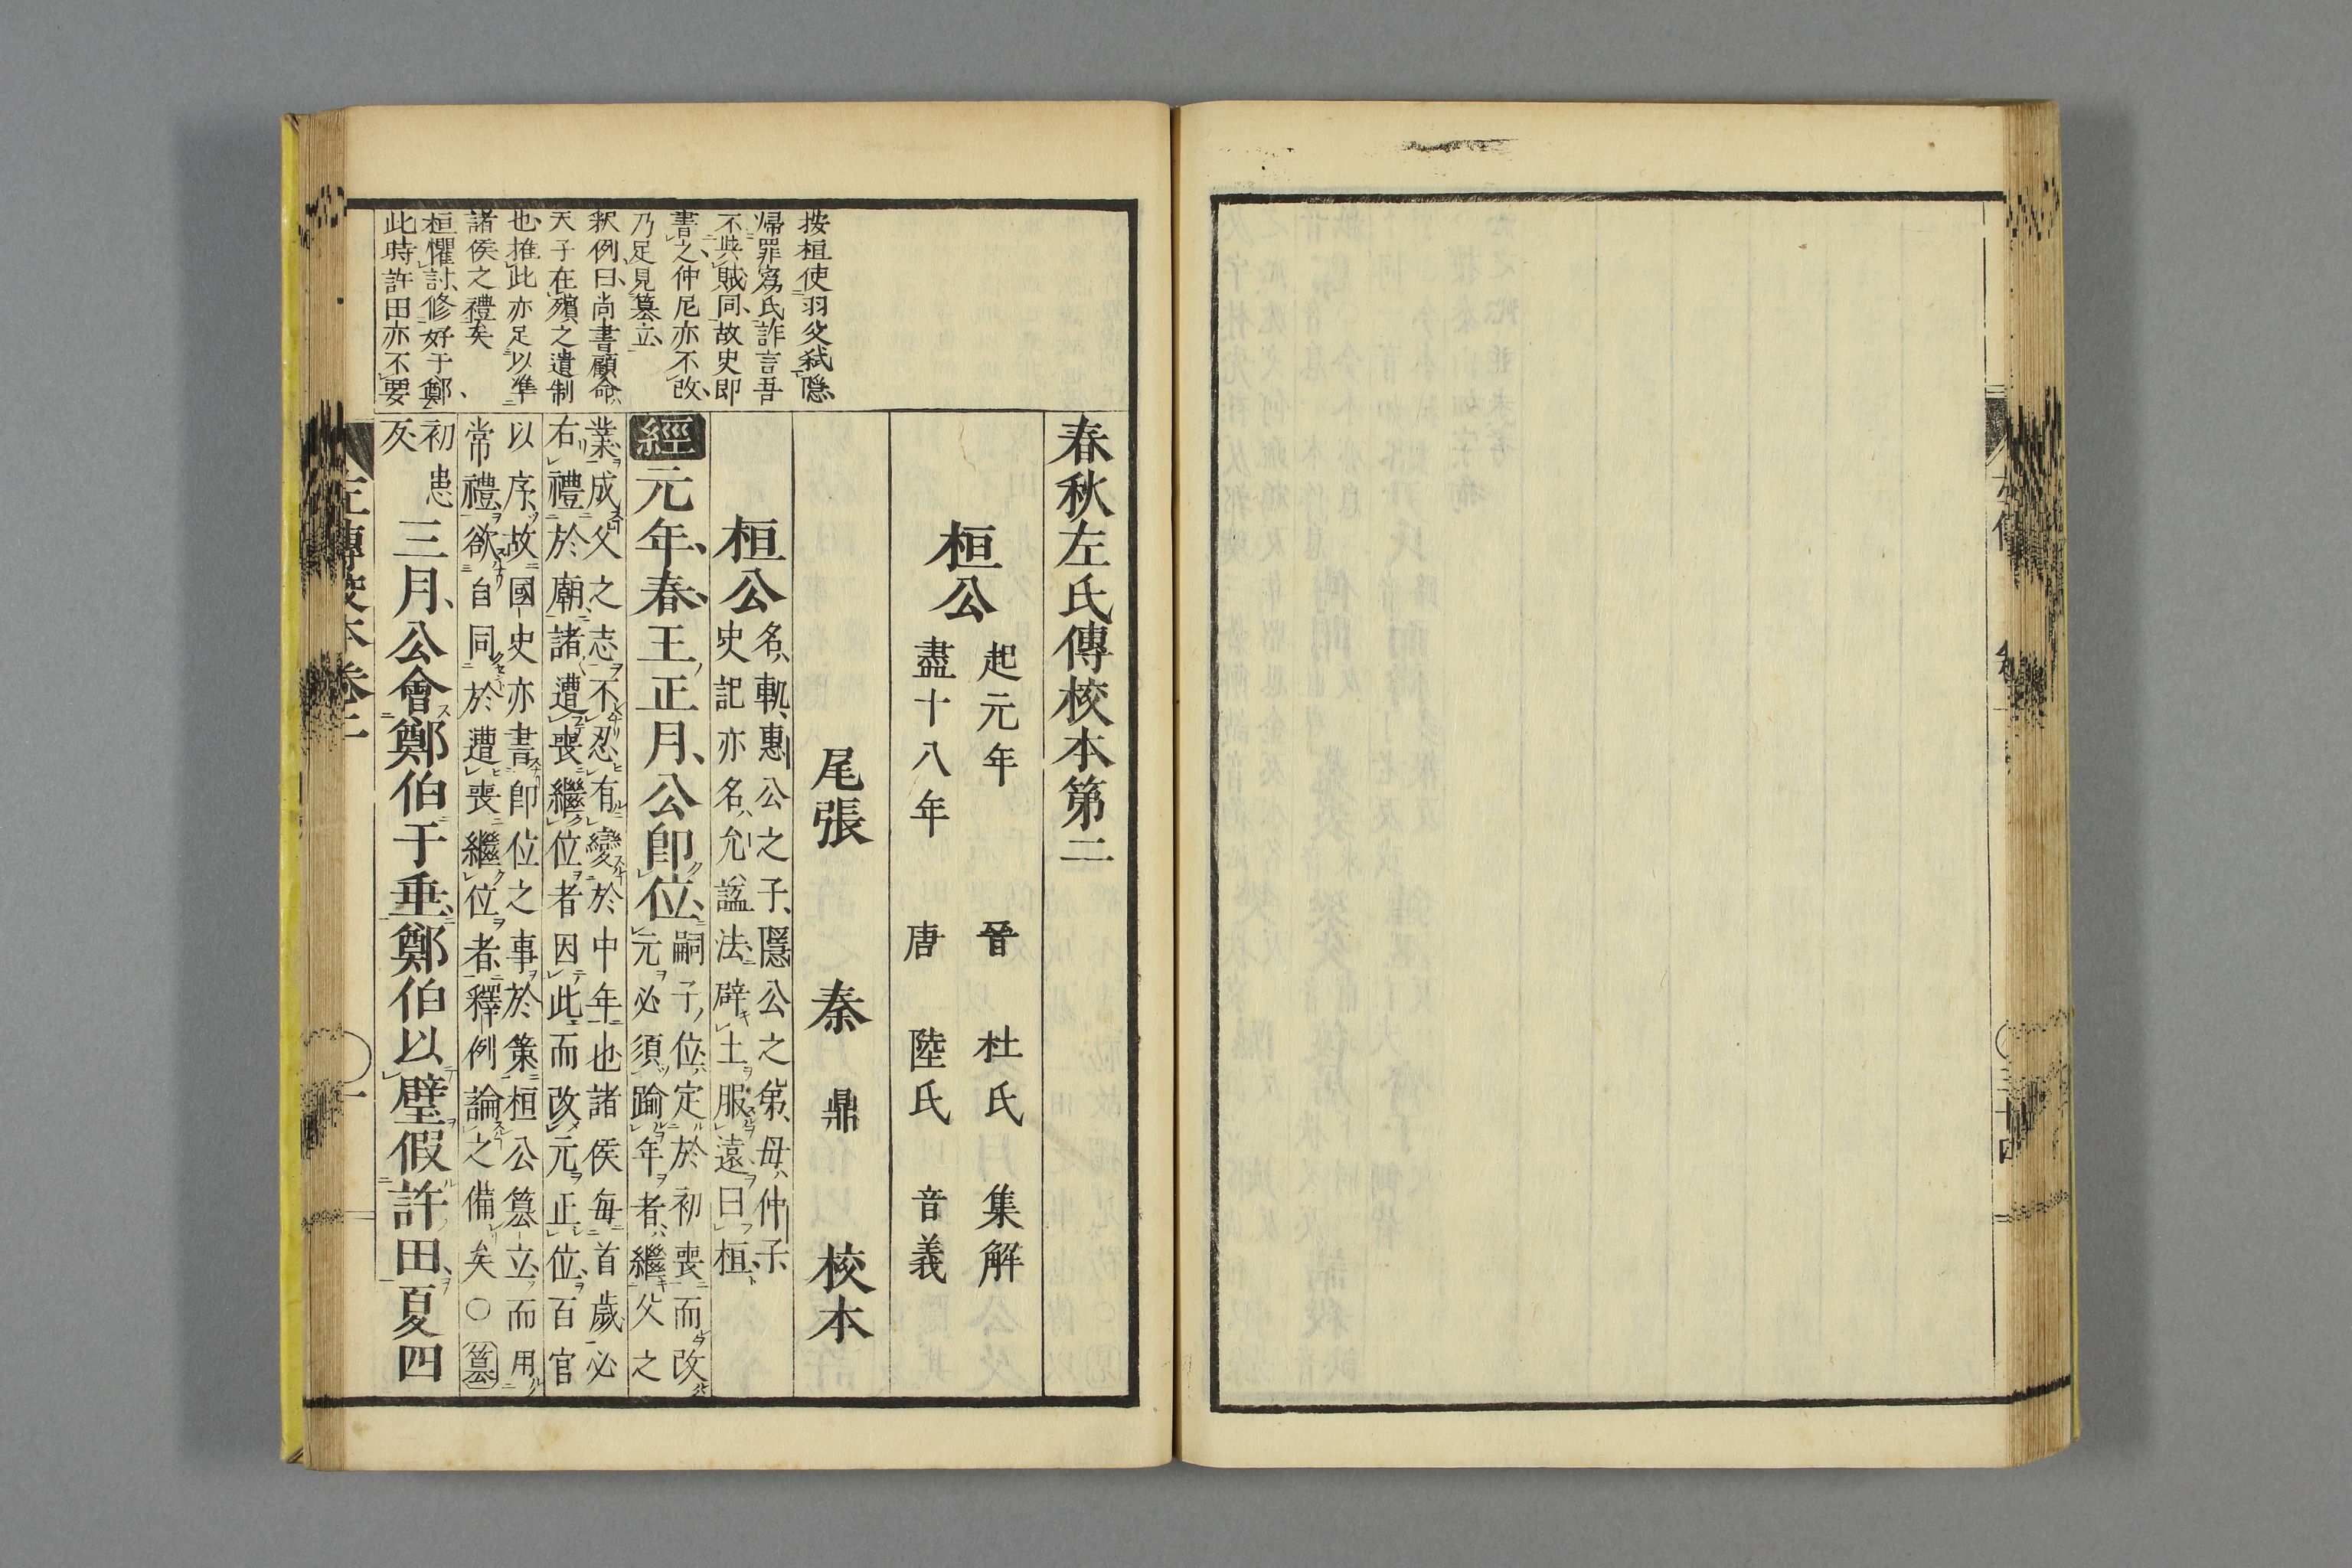 春秋左氏傳校本第二
桓公
起元年
盡十八年
晉 杜氏 集解
唐 陸氏 音義
尾張 秦 鼎 校本
桓公
名軌惠公之子隱公之弟母仲子
史記亦名允諡法辟土服遠曰桓
經元年春王正月公卽位
嗣子位定於初喪而改
元必須踰年者繼父之
業成父之志不忍有變於中年也諸侯每首歲必
右禮於廟諸遭喪繼位者因此而改元正位百官
以序故國史亦書卽位之事於策桓公簒立而用
常禮欲自同於遭喪繼位者釋例論之備矣○簒
初患
反
三月公會鄭伯于垂鄭伯以璧假許田夏四
按桓使羽父弑隱
歸罪寪氏詐言吾
不與賊同故史即
書之仲尼亦不改
乃足見簒立
釈例曰尚書顧命
天子在殯之遺制
也推此亦足以準
諸侯之禮矣
桓懼討修好于鄭
此時許田亦不要
左傳校本卷二
一